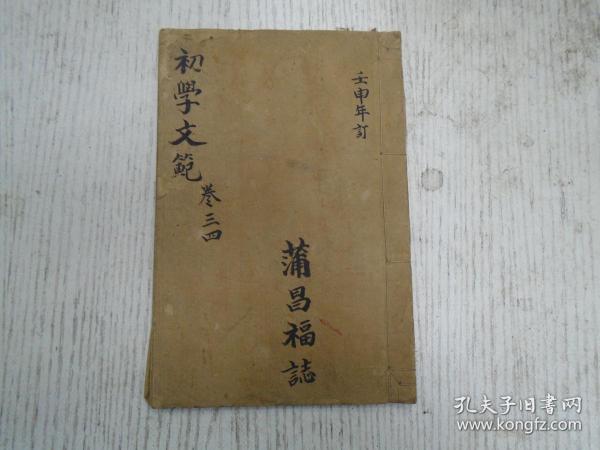 壬申年訂
蒲昌福誌
初學文範
卷三四
孔夫子旧书网
www.kongfz.com